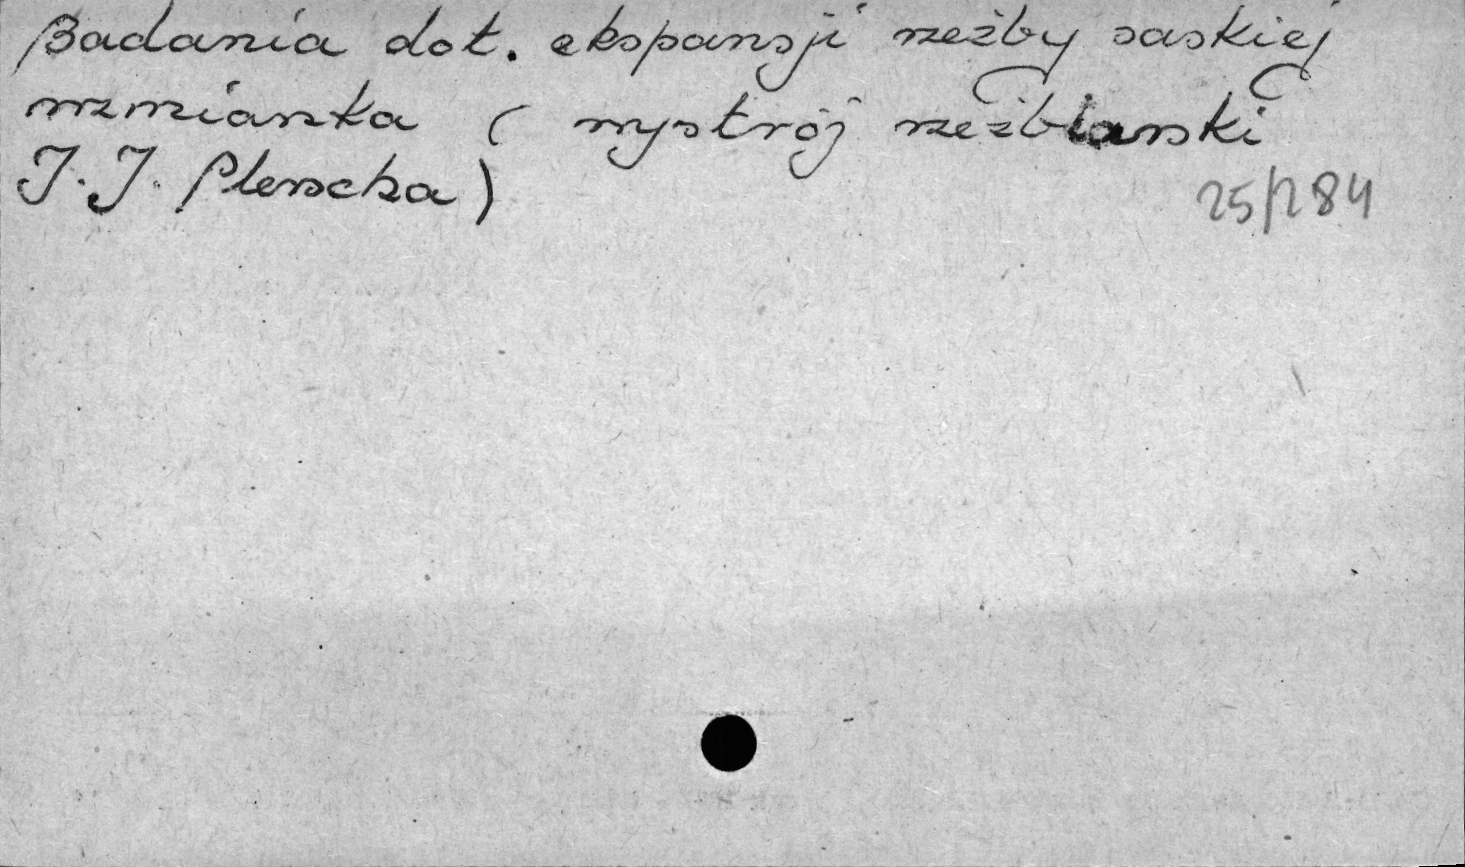 Badania dot. ekspansji rzeźby saskiej
wzmianka (wystrój rzeźbiarski
J. J. Plerscha)
25/284